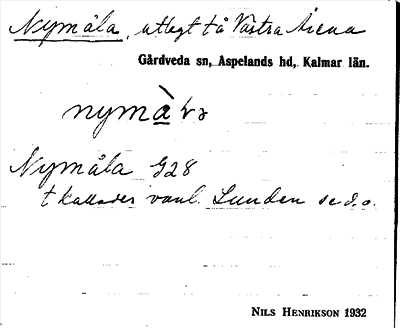 Nymåla, utlegt t å Västra Årena
Gårdveda sn, Aspelands hd, Kalmar län.
Nymåla G28
t kallades vanl. Lunden se d.o.
NILS HENRIKSON 1932